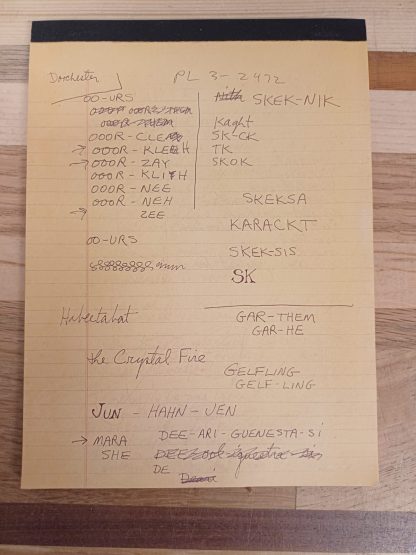 Dorchester
PL 3-2472
OO-URS
OOOR-ZHEM
OOOR-CLEA
OOOR-KLEECH
→ OOOR-ZAY
OOOR-KLITH
OOOR-NEE
OOOR-NEH
→ ZEE
OO-URS
Habeetabat
the Crystal Fire
JUN - HAHN - VEN
→ MARA
SHE
Nith SKEK-NIK
Kaght
SK-CK
TK
SKOK
SKEKSA
KARACKT
SKEK-SIS
SK
GAR-THEM
GAR-HE
GELFLING
GELF-LING
DEE-ARI-GUENESTA-SI
DE